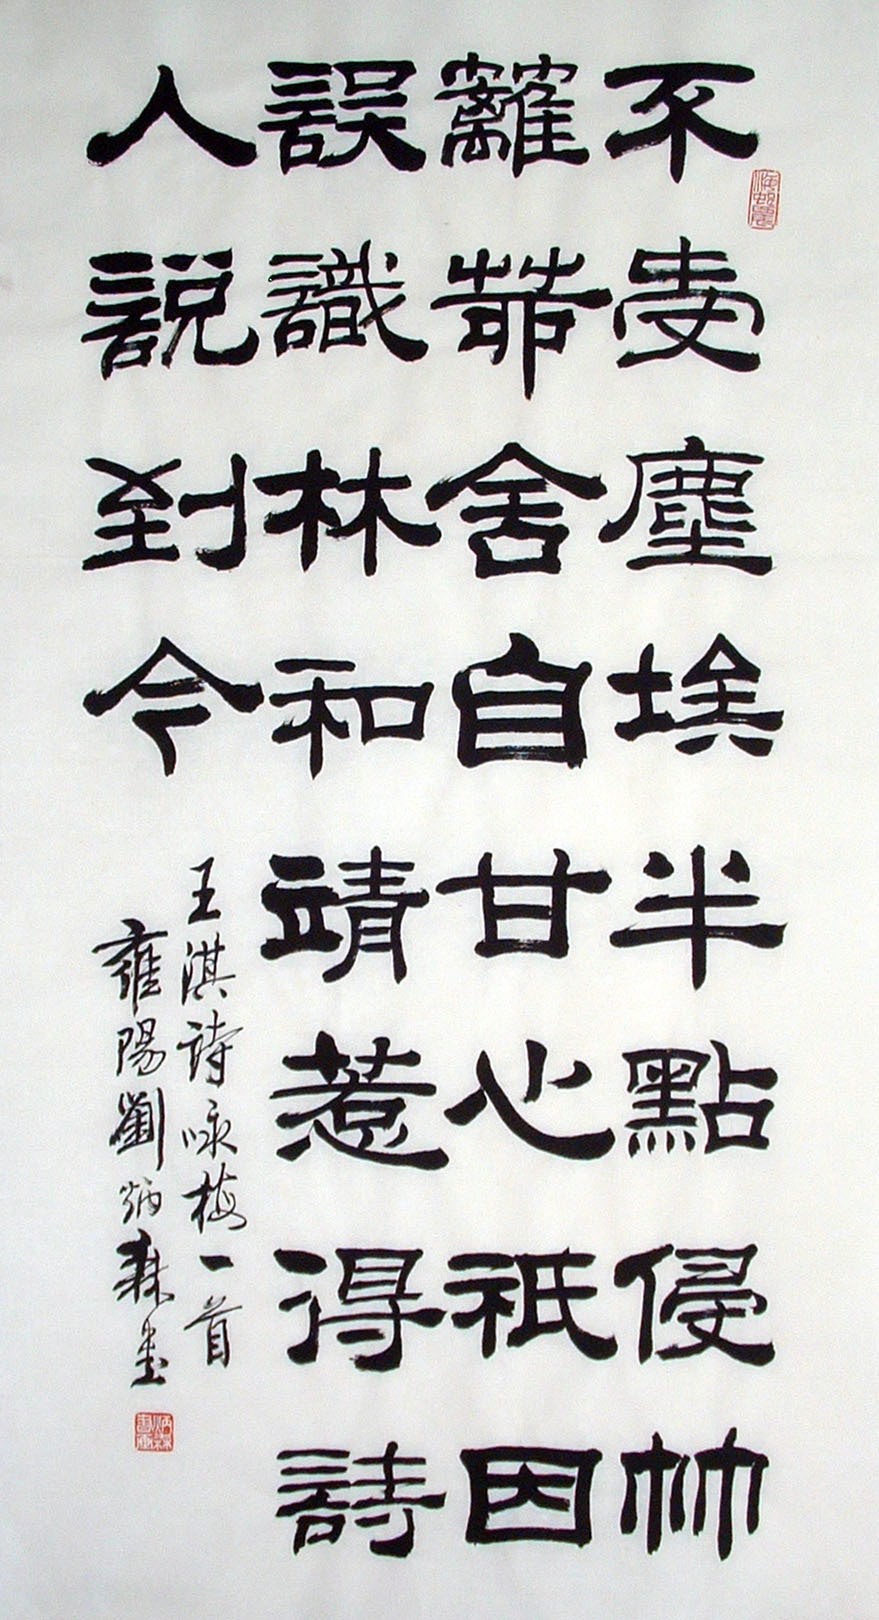 不受塵埃半點侵竹
籬茆舍自甘心祇因
誤識林和靖惹得詩
人説到今
王淇詩咏梅一首
雍陽劉炳森書